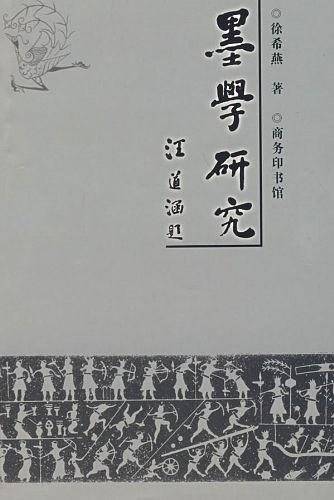 ◎徐希燕 著 ◎商务印书馆
墨學研究
汪道涵题